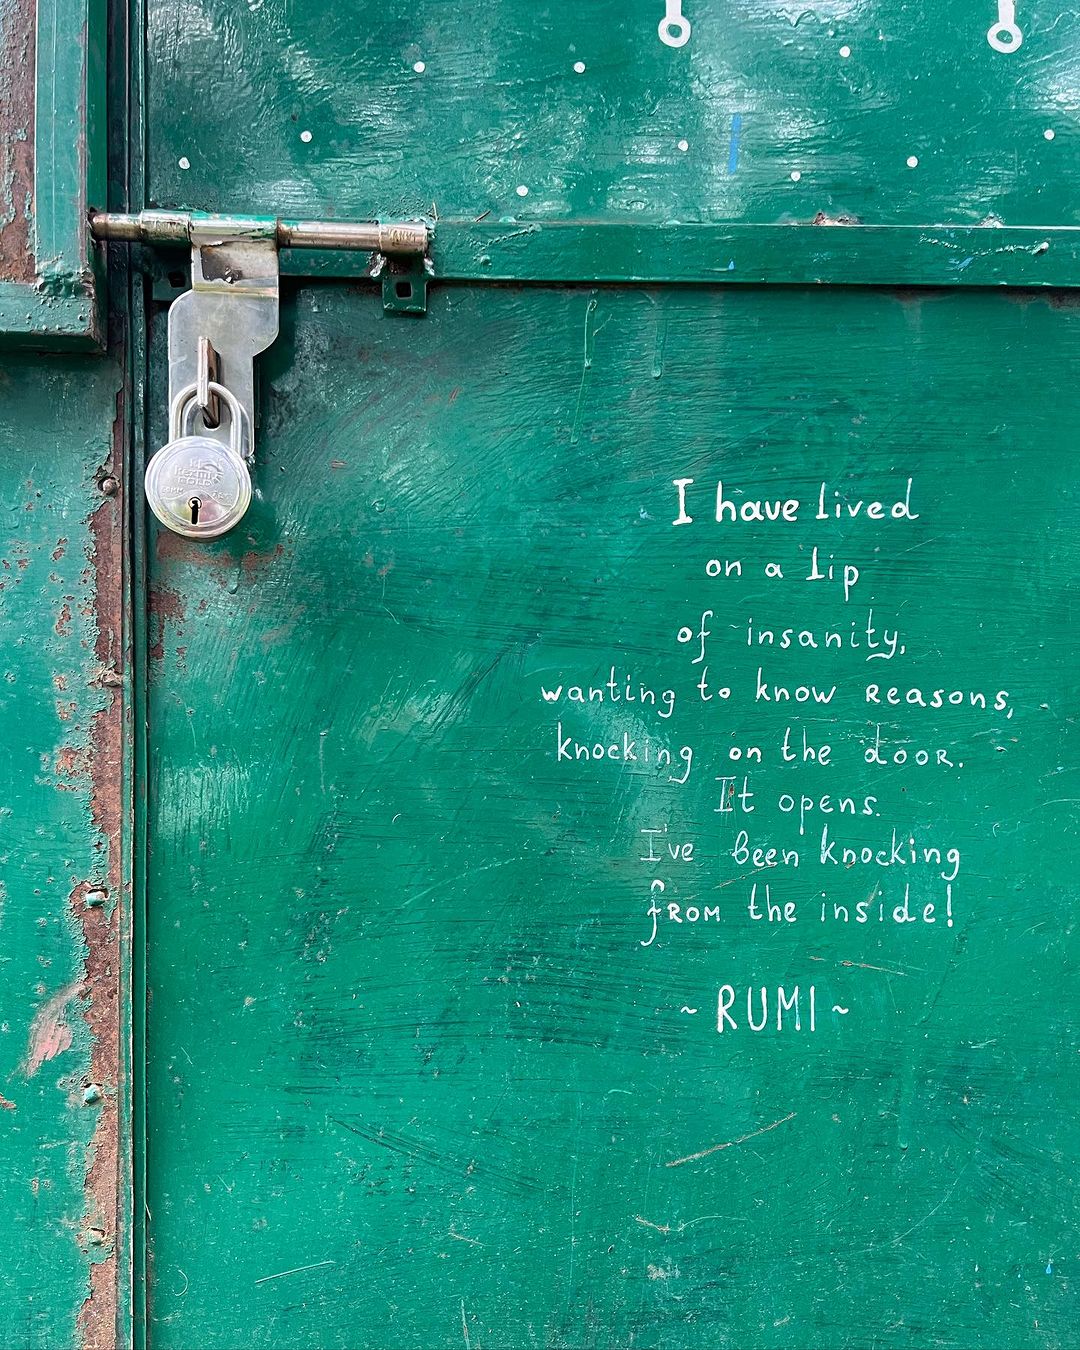 I have lived
on a lip
of insanity,
wanting to know reasons,
knocking on the door.
It opens.
I've been knocking
from the inside!
~ RUMI ~